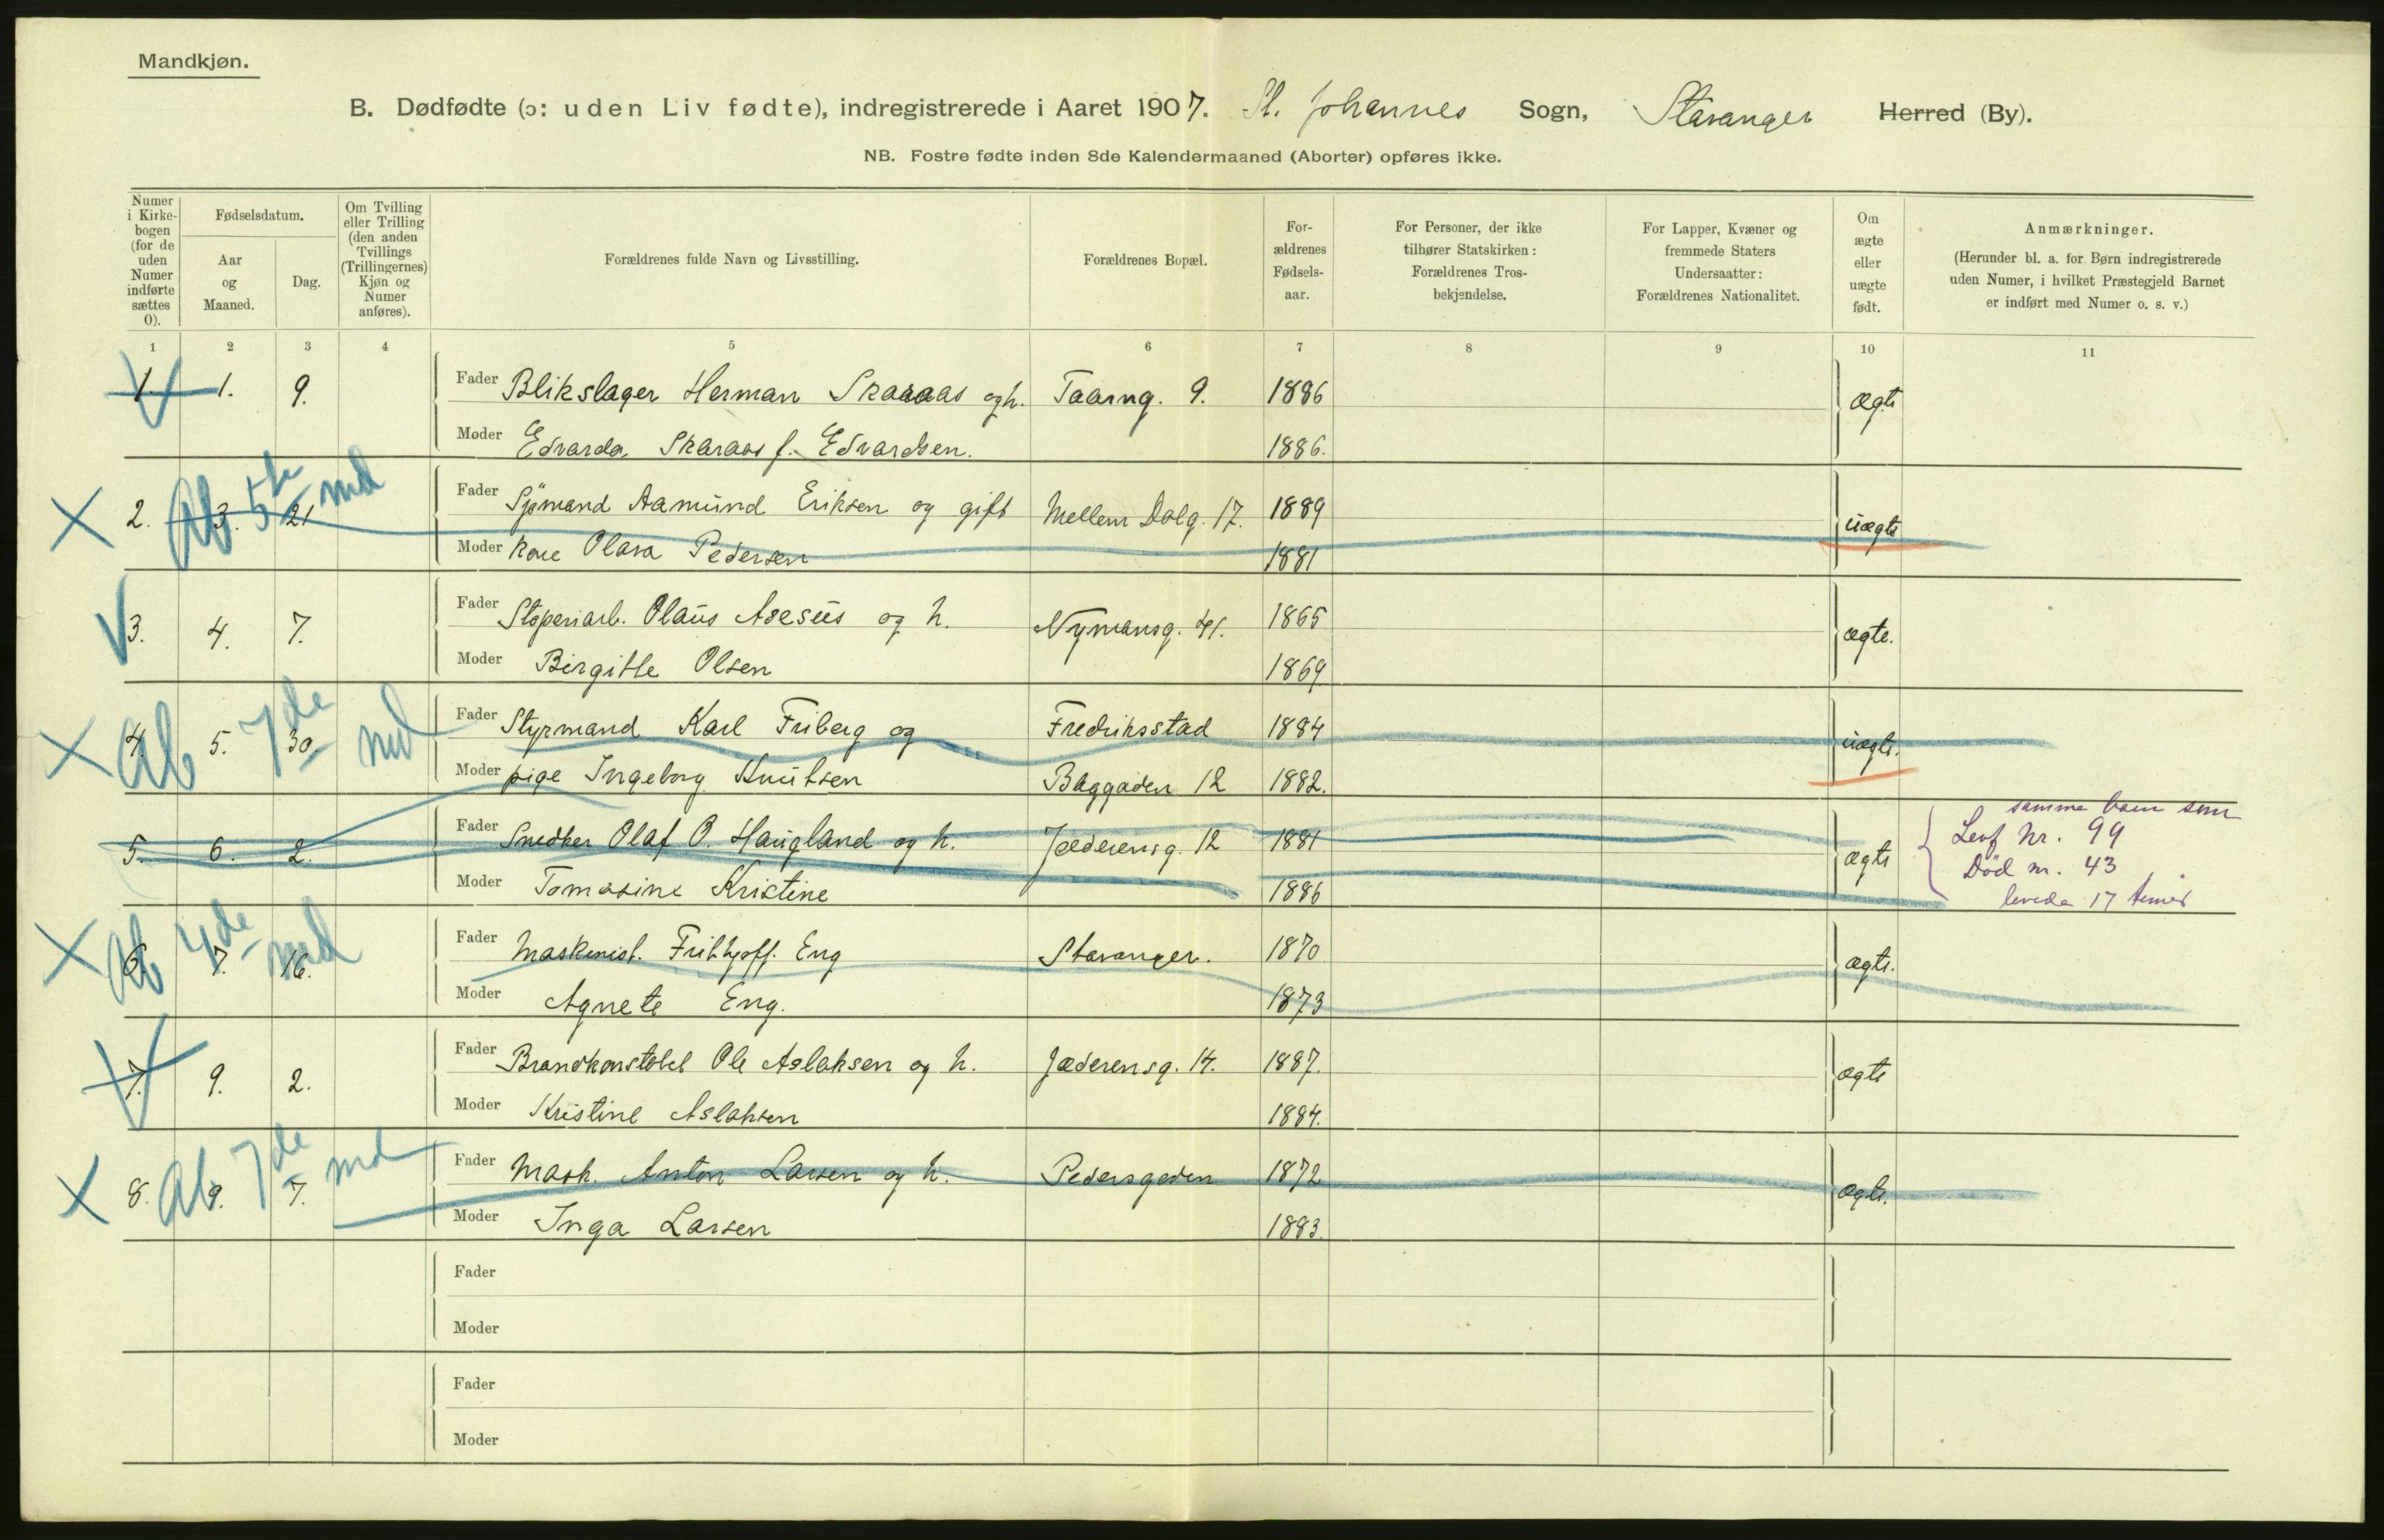 Mandkjøn.
B. Dødfødte (ɔ: uden Liv fødte), indregistrerede i Aaret 1907. St. Johannes Sogn, Stavanger Herred (By).
NB. Fostre fødte inden 8de Kalendermaaned (Aborter) opføres ikke.
Numer i Kirkebogen (for de uden Numer indførte sættes 0).
Fødselsdatum.
Aar og Maaned.
Dag.
Om Tvilling eller Trilling (den anden Tvillings (Trillingernes) Kjøn og Numer anføres).
Forældrenes fulde Navn og Livsstilling.
Forældrenes Bopæl.
Forældrenes Fødselsaar.
For Personer, der ikke tilhører Statskirken: Forældrenes Trosbekjendelse.
For Lapper, Kvæner og fremmede Staters Undersaatter: Forældrenes Nationalitet.
Om ægte eller uægte født.
Anmærkninger.
(Herunder bl. a. for Børn indregistrerede uden Numer, i hvilket Præstegjeld Barnet er indført med Numer o. s. v.)
1 2 3 4 5 6 7 8 9 10 11
1. 1. 9. Fader Blikslager Herman Skaraas og h. Taarng. 9. 1886 Ægte
Moder Edvarda Skaraas f. Edvardsen. 1886.
2. 3. 21 Ab 5te md Fader Sjømand Aamund Eriksen og gift Mellem Dalg. 17. 1889 uægte
Moder kone Olava Pedersen 1881
3. 4. 7. Fader Støperiarb. Olaus Aseus og h. Nymansg. 41. 1865 ægte.
Moder Birgitte Olsen 1869
4. 5. 30. Ab 7de md Fader Styrmand Karl Friberg og Fredriksstad 1884 uægte.
Moder pige Ingeborg Knutsen Baggaden 12 1882.
5. 6. 2. Fader Snedker Olaf O. Haugland og h. Jæderensg. 12 1881 ægte
Moder Tomasine Kristine 1886
samme barn som
Levf Nr. 99
Död nr. 43
levede 17 timer
6. 7. 16. Ab 4de md Fader Maskinist. Frithjoff. Eng Stavanger. 1870 ægte.
Moder Agnete Eng. 1873
7. 9. 2. Fader Brandkonstabel Ole Aslaksen og h. Jæderensg. 14. 1887. ægte
Moder Kristine Aslaksen 1884.
8. 9. 7. Ab 7de md Fader Mask. Anton Larsen og h. Pedersgaden 1872 ægte.
Moder Inga Larsen 1883.
Fader
Moder
Fader
Moder